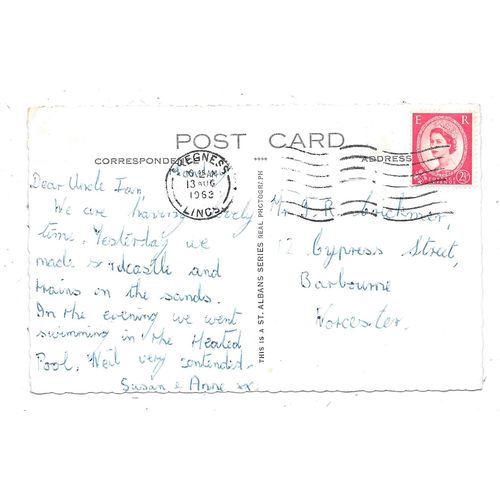 POST CARD
CORRESPONDENCE
ADDRESS
SKEGNESS
13 AUG
1963
LINCS
E R
2½
Dear Uncle Ian
We are having lovely
time. Yesterday we
made sandcastle and
trains on the sands.
In the evening we went
swimming in the Heated
Pool. Neil very contended.
Susan & Anne xx
THIS IS A ST. ALBANS SERIES REAL PHOTOGRAPH
Mr I. R.
12 Cypress Street,
Barbourne
Worcester.